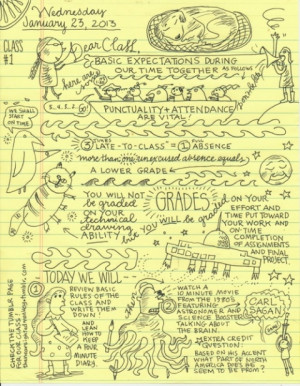 Wednesday
January 23, 2013
CLASS
#1
Dear Class,
here are
BASIC EXPECTATIONS DURING
OUR TIME TOGETHER AS FOLLOWS
WE SHALL
START
ON TIME
PUNCTUALITY + ATTENDANCE
ARE VITAL!
3 TIMES
LATE-TO-CLASS = 1 FULL
ABSENCE
more than one unexcused absence equals
A LOWER GRADE
YOU WILL NOT
be graded
ON YOUR
technical
drawing
ABILITY
but YOU WILL be graded
GRADES
ON YOUR
EFFORT AND
TIME PUT TOWARD
YOUR WORK AND
ON-TIME
COMPLETION
OF ASSIGNMENTS
AND FINAL
PROJECT
TODAY WE WILL
1
REVIEW BASIC
RULES OF THE
CLASS AND
WRITE THEM
DOWN!
AND
LEARN
HOW TO
KEEP A
FIVE
MINUTE
DIARY.
then
WATCH A
10 MINUTE MOVIE
FROM THE 1980s
FEATURING
ASTRONOMER AND
SCIENCE DOCTOR
TALKING ABOUT
THE BRAIN.
CARL
SAGAN
EXTRA CREDIT
QUESTION:
BASED ON HIS ACCENT
WHAT PART OF NORTH
AMERICA DOES HE
SEEM TO BE FROM?
CHECK THE TUMBLR PAGE